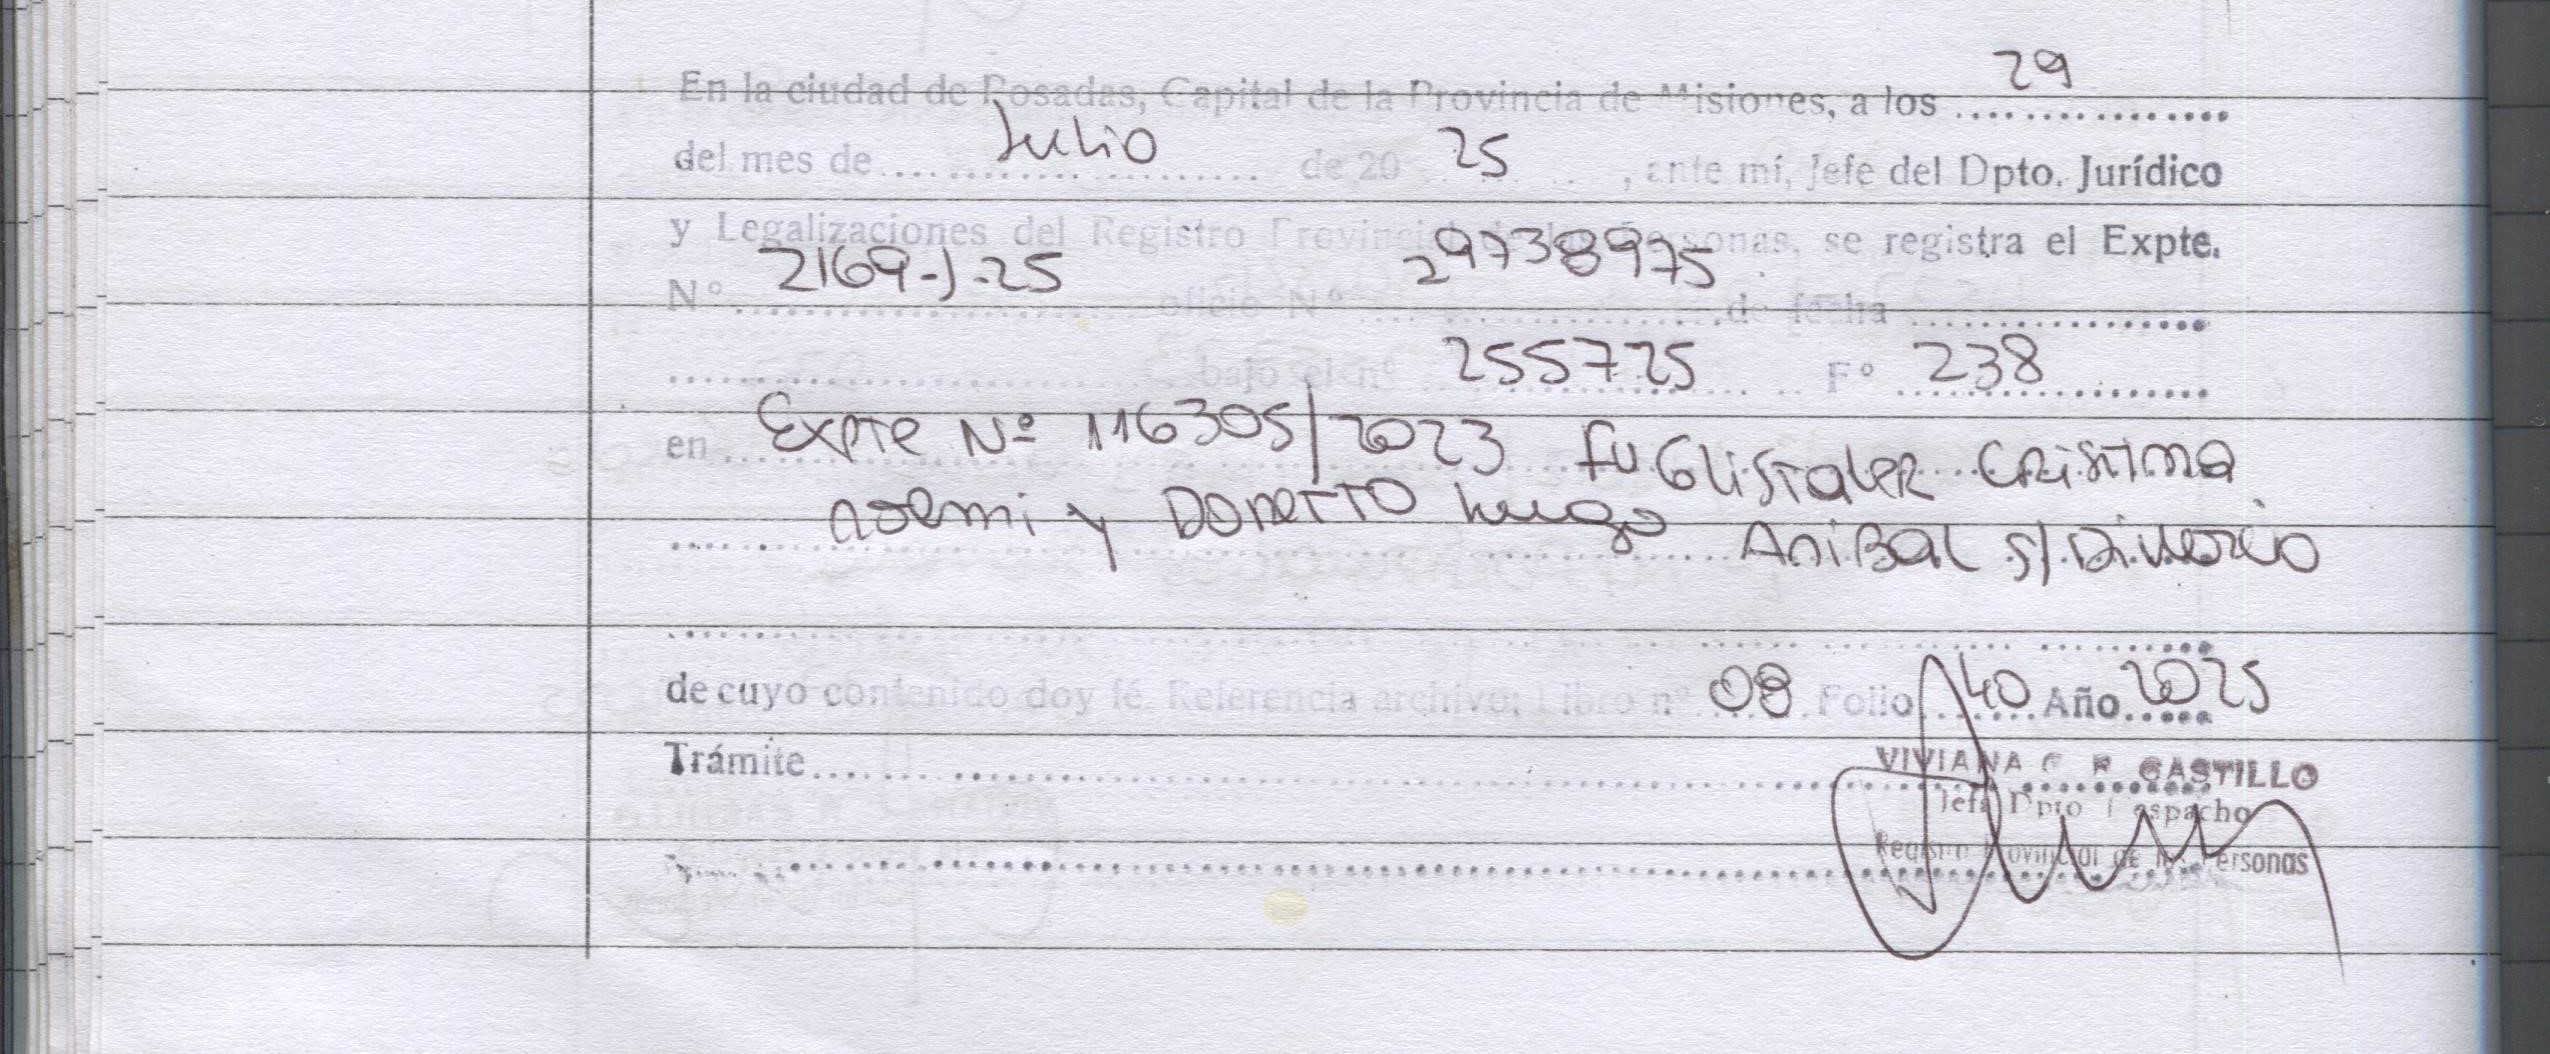 En la ciudad de Posadas, Capital de la Provincia de Misiones, a los 29
del mes de Julio de 20 25, ante mí, Jefe del Dpto. Jurídico
y Legalizaciones del Registro Provincial de las Personas, se registra el Expte.
Nº 2169-J-25 oficio Nº 29738975 de fecha
bajo el nº 255725 Fº 238
en Expte Nº 116305/2023 Fuglistaler Cristina
noemi y Donetto hugo Anibal s/Divorcio
de cuyo contenido doy fé. Referencia archivo: Libro nº 08 Folio 40 Año 2025
Trámite
VIVIANA C. R. CASTILLO
Jefa Dpto Despacho
Registro Provincial de las Personas